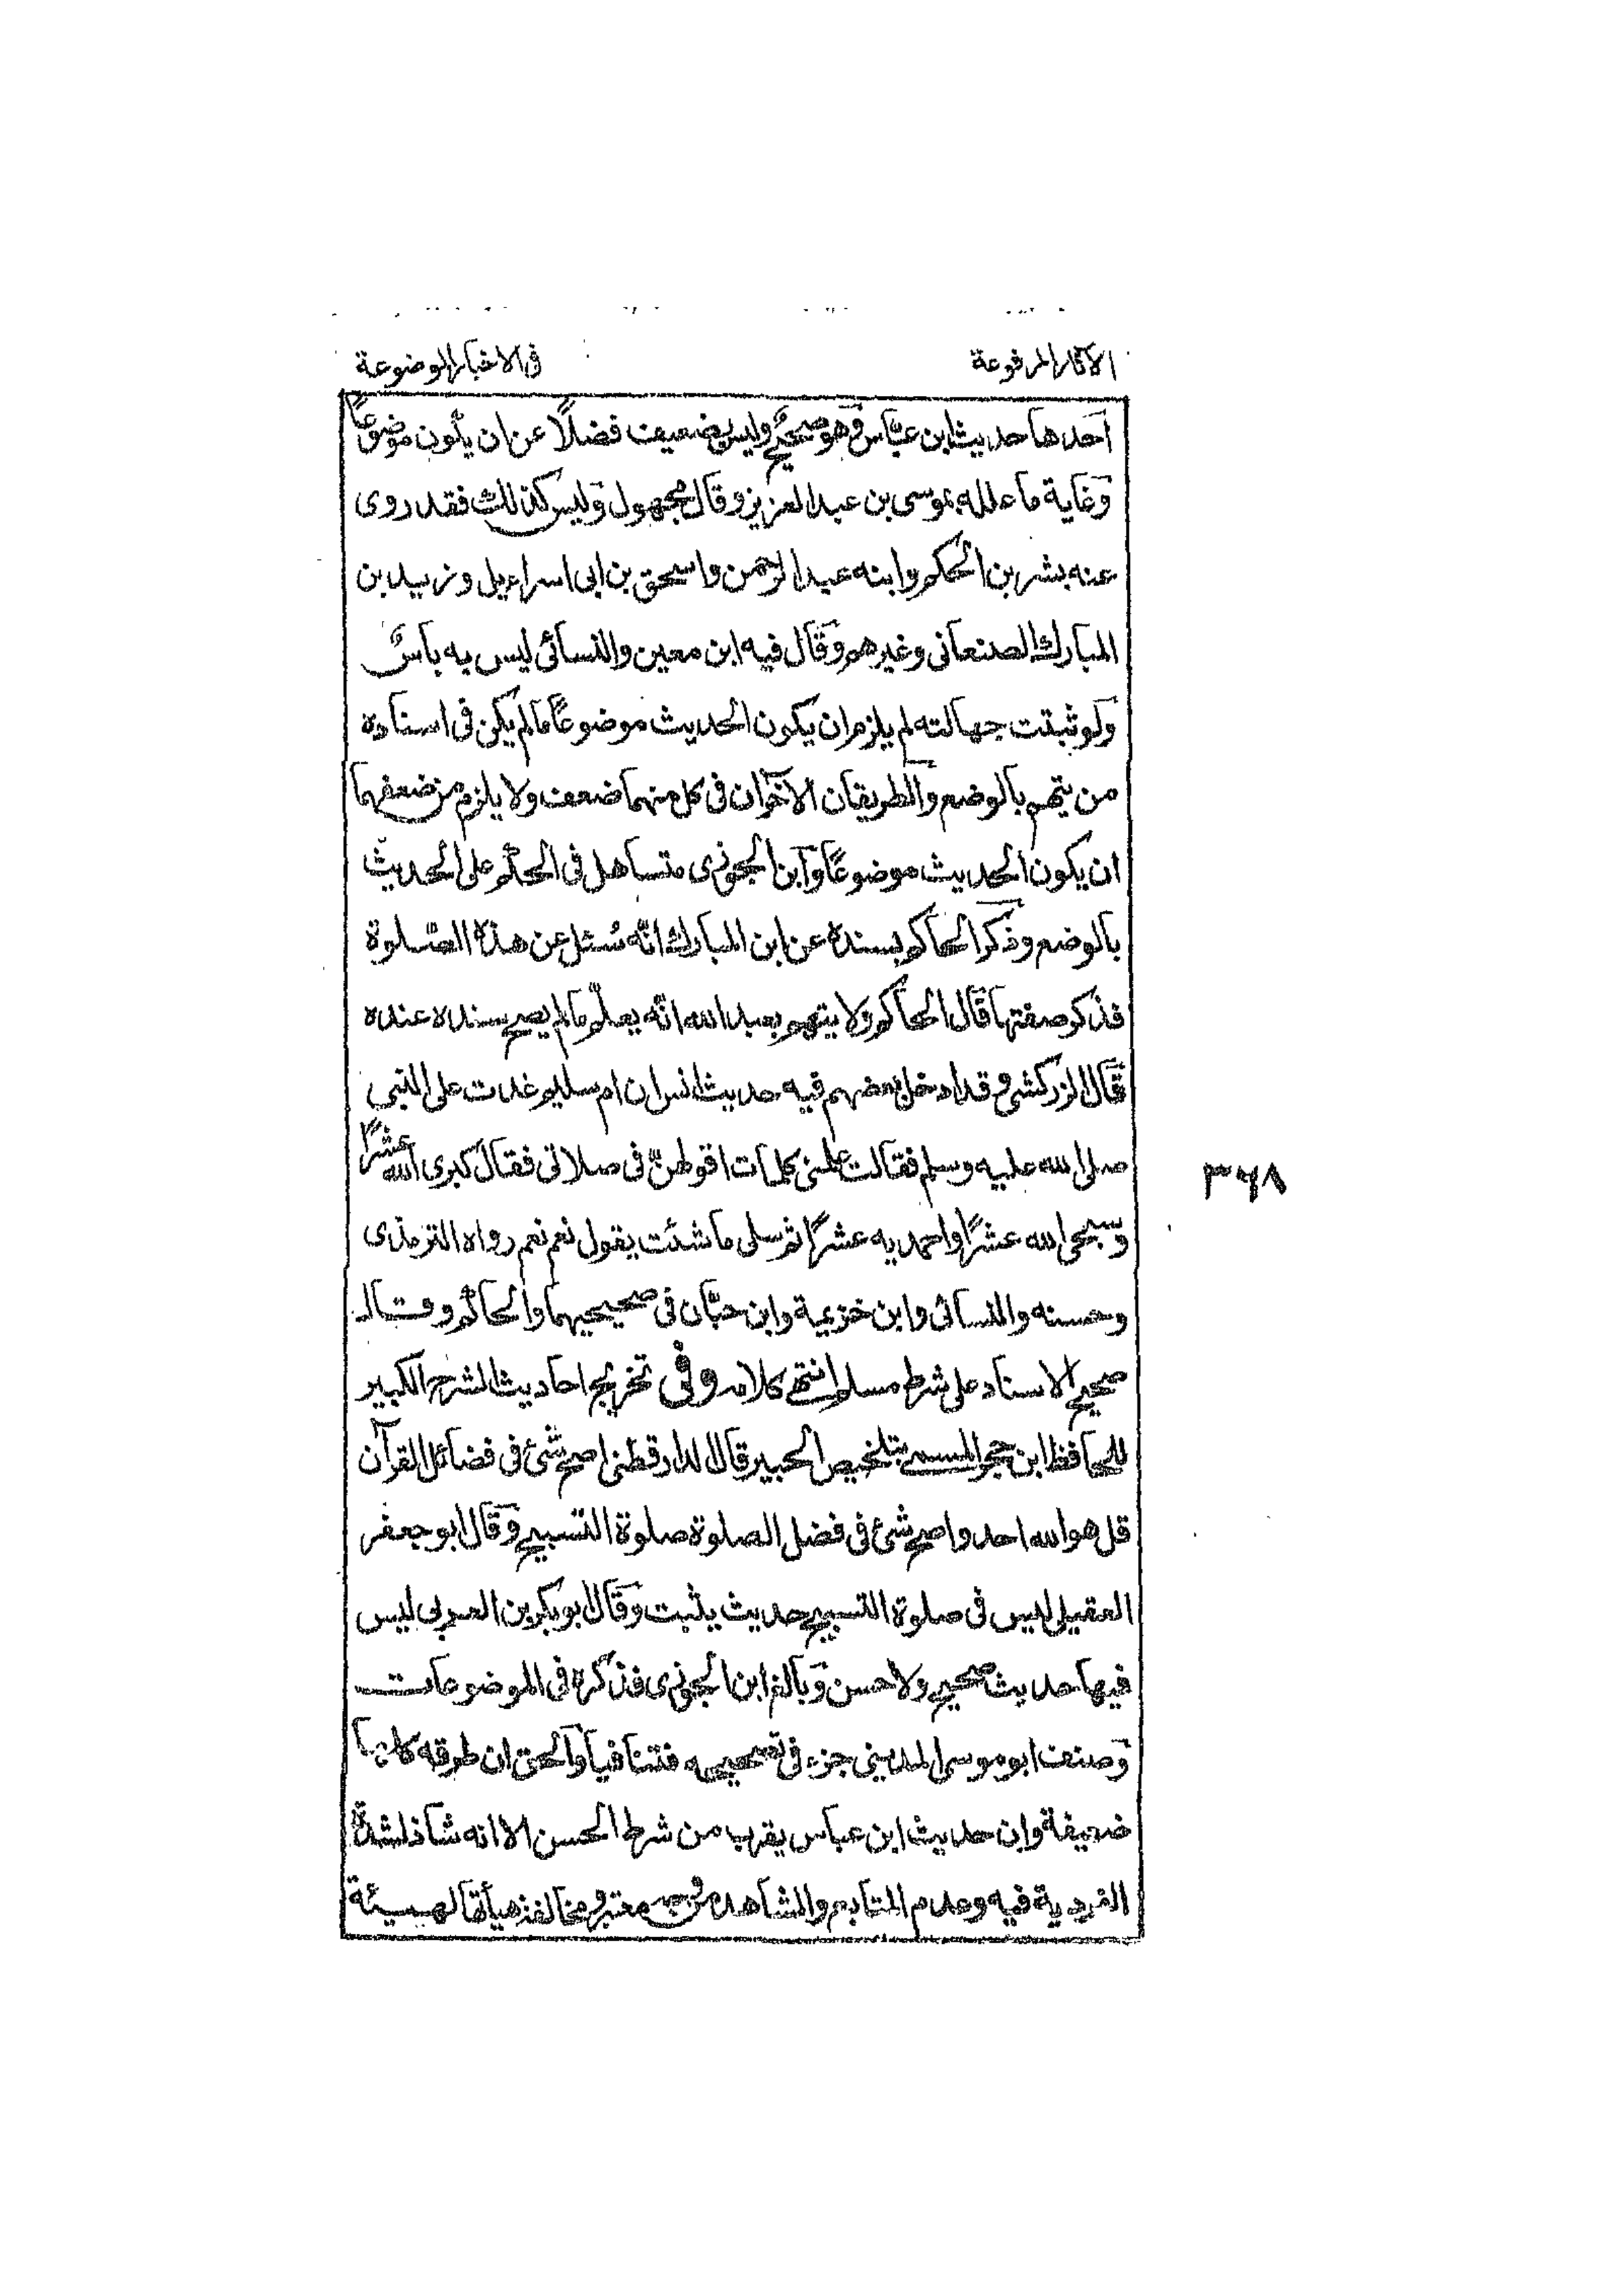 الآثار المرفوعة
فى الاخبار الموضوعة
احدها حديث ابن عباس وهو صحيح وليس بضعيف فضلاً عن ان يكون موضوعاً
وغاية ما علله بموسى بن عبد العزيز وقال مجهول وليس كذلك فقد روى
عنه بشر بن الحكم وابنه عبد الرحمن واسحق بن ابى اسراءيل وزيد بن
المبارك الصنعانى وغيرهم وقال فيه ابن معين والنسائى ليس به بأسٌ
ولو ثبتت جهالته لم يلزم ان يكون الحديث موضوعاً مالم يكن فى اسناده
من يتهم بالوضع والطريقان الآخران فى كل منهما ضعف ولا يلزم من ضعفهما
ان يكون الحديث موضوعاً وابن الجوزى متساهل فى الحكم على الحديث
بالوضع وذكر الحاكم بسنده عن ابن المبارك انّه سُئل عن هذه الصّلوة
فذكر صفتها قال الحاكم ولا يتهم بعبد الله انّه يعلّم مالم يصح سنده عنده
قال الزركشى وقد ادخل بعضهم فيه حديث انس ان ام سليم غدت على النبى
صلى الله عليه وسلم فقالت علمنى كلمات اقولهنّ فى صلاتى فقال كبرى الله عشرًا
وسبحى الله عشرًا واحمديه عشرًا ثم سلى ما شئت يقول نعم نعم رواه الترمذى
وحسنه والنسائى وابن خزيمة وابن حبّان فى صحيحيهما والحاكم وقال
صحيح الاسناد على شرط مسلم انتهى كلامه وفى تخريج احاديث الشرح الكبير
للحافظ ابن حجر المسمى بتلخيص الحبير قال الدارقطنى اصح شئ فى فضائل القرآن
قل هو الله احد واصح شئ فى فضل الصلوة صلوة التسبيح وقال ابو جعفر
العقيلى ليس فى صلوة التسبيح حديث يثبت وقال ابو بكر بن العربى ليس
فيها حديث صحيح ولا حسن وبالغ ابن الجوزى فذكره فى الموضوعات
وصنف ابو موسى المدينى جزء فى تصحيحه فتنافيا والحق ان طرقه كلها
ضعيفة وان حديث ابن عباس يقرب من شرط الحسن الا انه شاذ لشدة
الفردية فيه وعدم المتابع والشاهد من وجه معتبر ومخالفة هيأتها لهيئة
٣٦٨